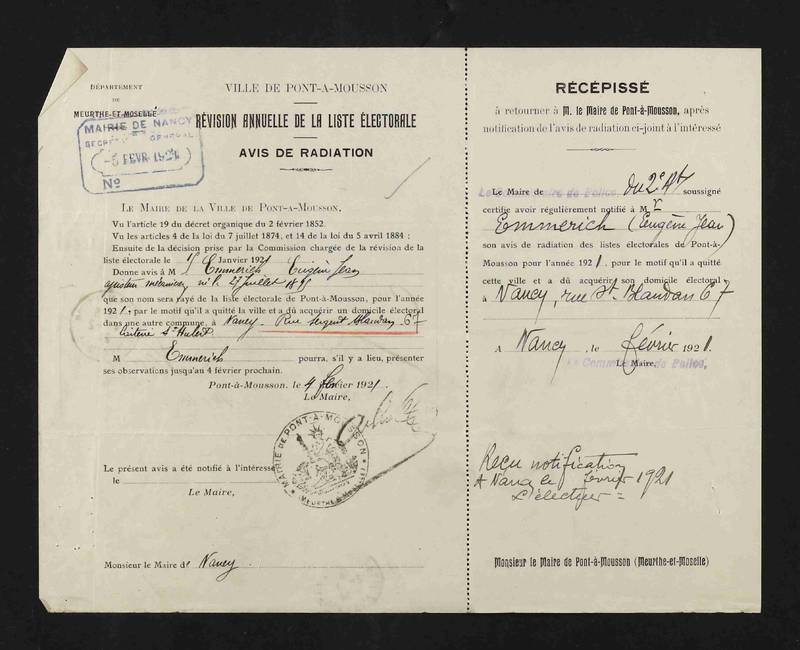 DÉPARTEMENT
DE
MEURTHE-ET-MOSELLE
MAIRIE DE NANCY
SECRÉT GÉNÉRAL
-5 FEVR 1921
No
VILLE DE PONT-A-MOUSSON
RÉVISION ANNUELLE DE LA LISTE ÉLECTORALE
AVIS DE RADIATION
LE MAIRE DE LA VILLE DE PONT-A-MOUSSON,
Vu l'article 19 du décret organique du 2 février 1852.
Vu les articles 4 de la loi du 7 juillet 1874, et 14 de la loi du 5 avril 1884 ;
Ensuite de la décision prise par la Commission chargée de la révision de la
liste électorale le Janvier 1921
Donne avis à M Emmerich Eugène Jean
né l. 27 juillet
que son nom sera rayé de la liste électorale de Pont-à-Mousson, pour l'année
1921, par le motif qu'il a quitté la ville et a dû acquérir un domicile électoral
dans une autre commune, à Nancy - Rue Sergent Blandan 67
St Hubert.
M Emmerich pourra, s'il y a lieu, présenter
ses observations jusqu'au 4 février prochain.
Pont-à-Mousson, le 4 février 1921.
Le Maire,
MAIRIE DE PONT-A-MOUSSON
(MEURTHE & MOSELLE)
Le présent avis a été notifié à l'intéressé
le
Le Maire,
Monsieur le Maire de Nancy.
RÉCÉPISSÉ
à retourner à M. le Maire de Pont-à-Mousson, après
notification de l'avis de radiation ci-joint à l'intéressé
Le Maire de du 2e Art soussigné
certifie avoir régulièrement notifié à Mr
Emmerich (Eugène Jean)
son avis de radiation des listes électorales de Pont-à-
Mousson pour l'année 1921, pour le motif qu'il a quitté
cette ville et a dû acquérir son domicile électoral
à Nancy, rue St Blandan 67
A Nancy, le février 1921.
Le Maire,
Le Commissaire de Police,
Reçu notification
A Nancy le février 1921
L'électeur =
Monsieur le Maire de Pont-à-Mousson (Meurthe-et-Moselle)